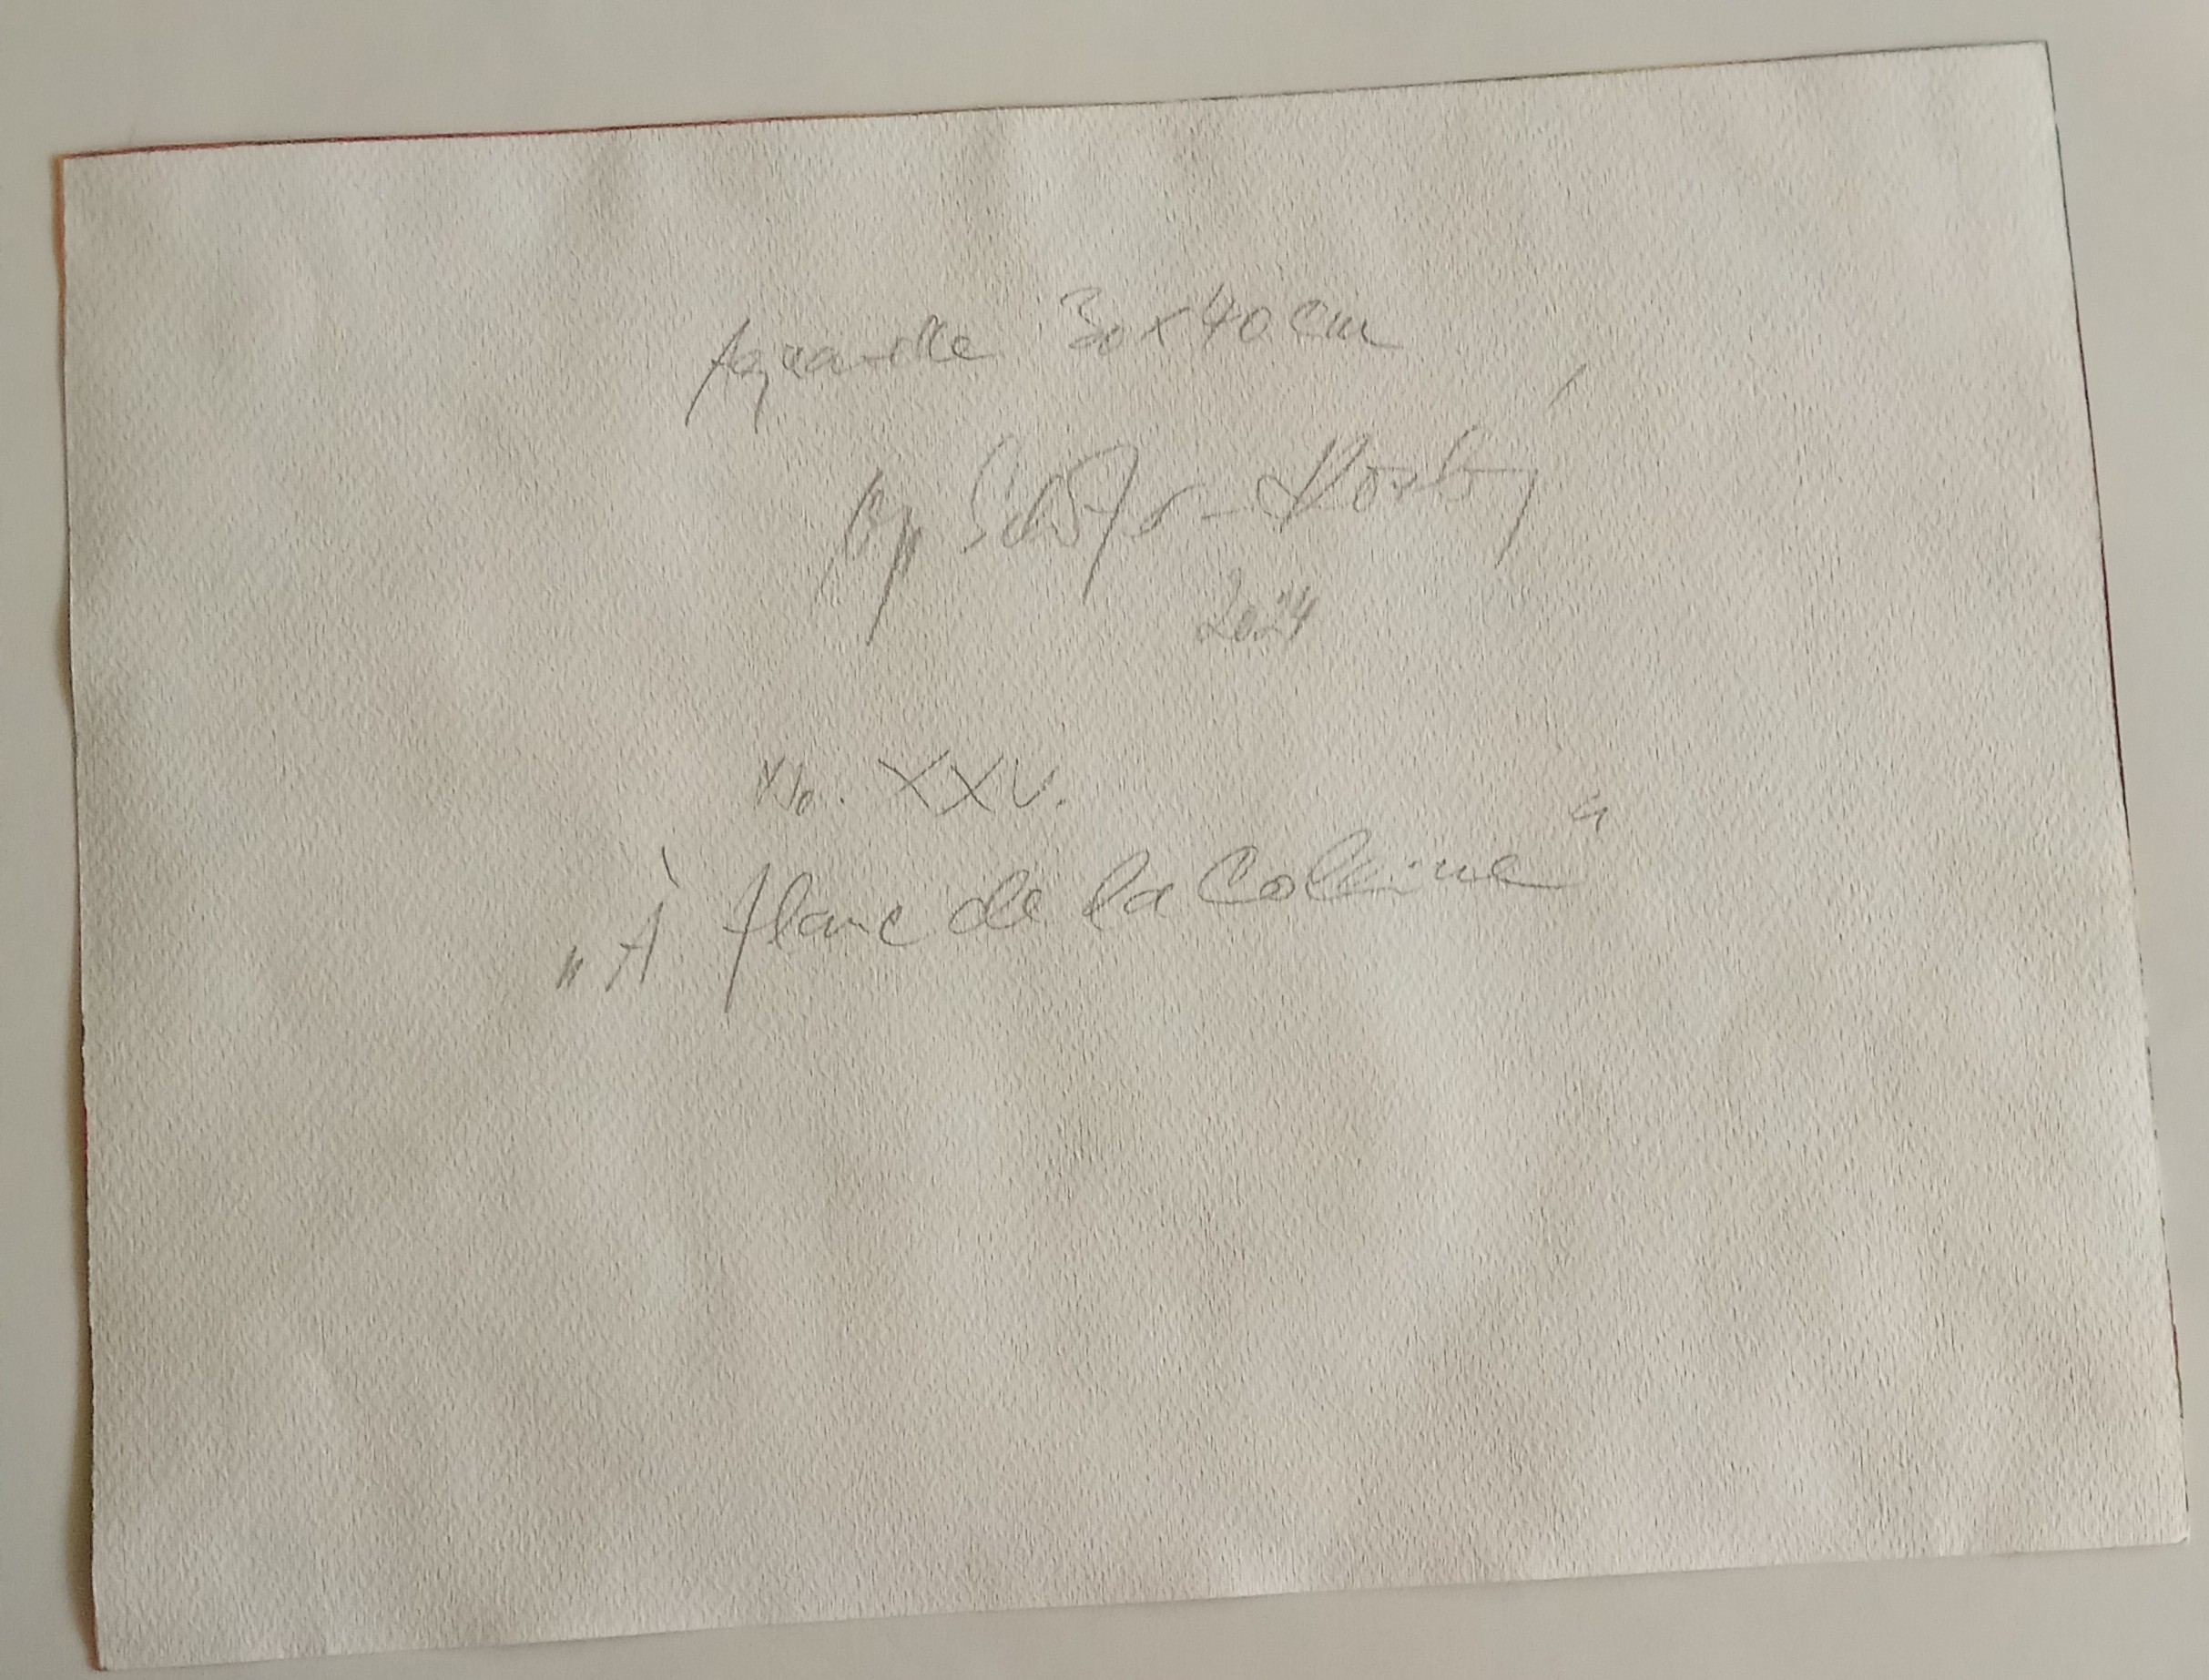 Aquarelle 30x40 cm
by Schäfer-
2024
No. XXV.
„À flanc de la Colline“